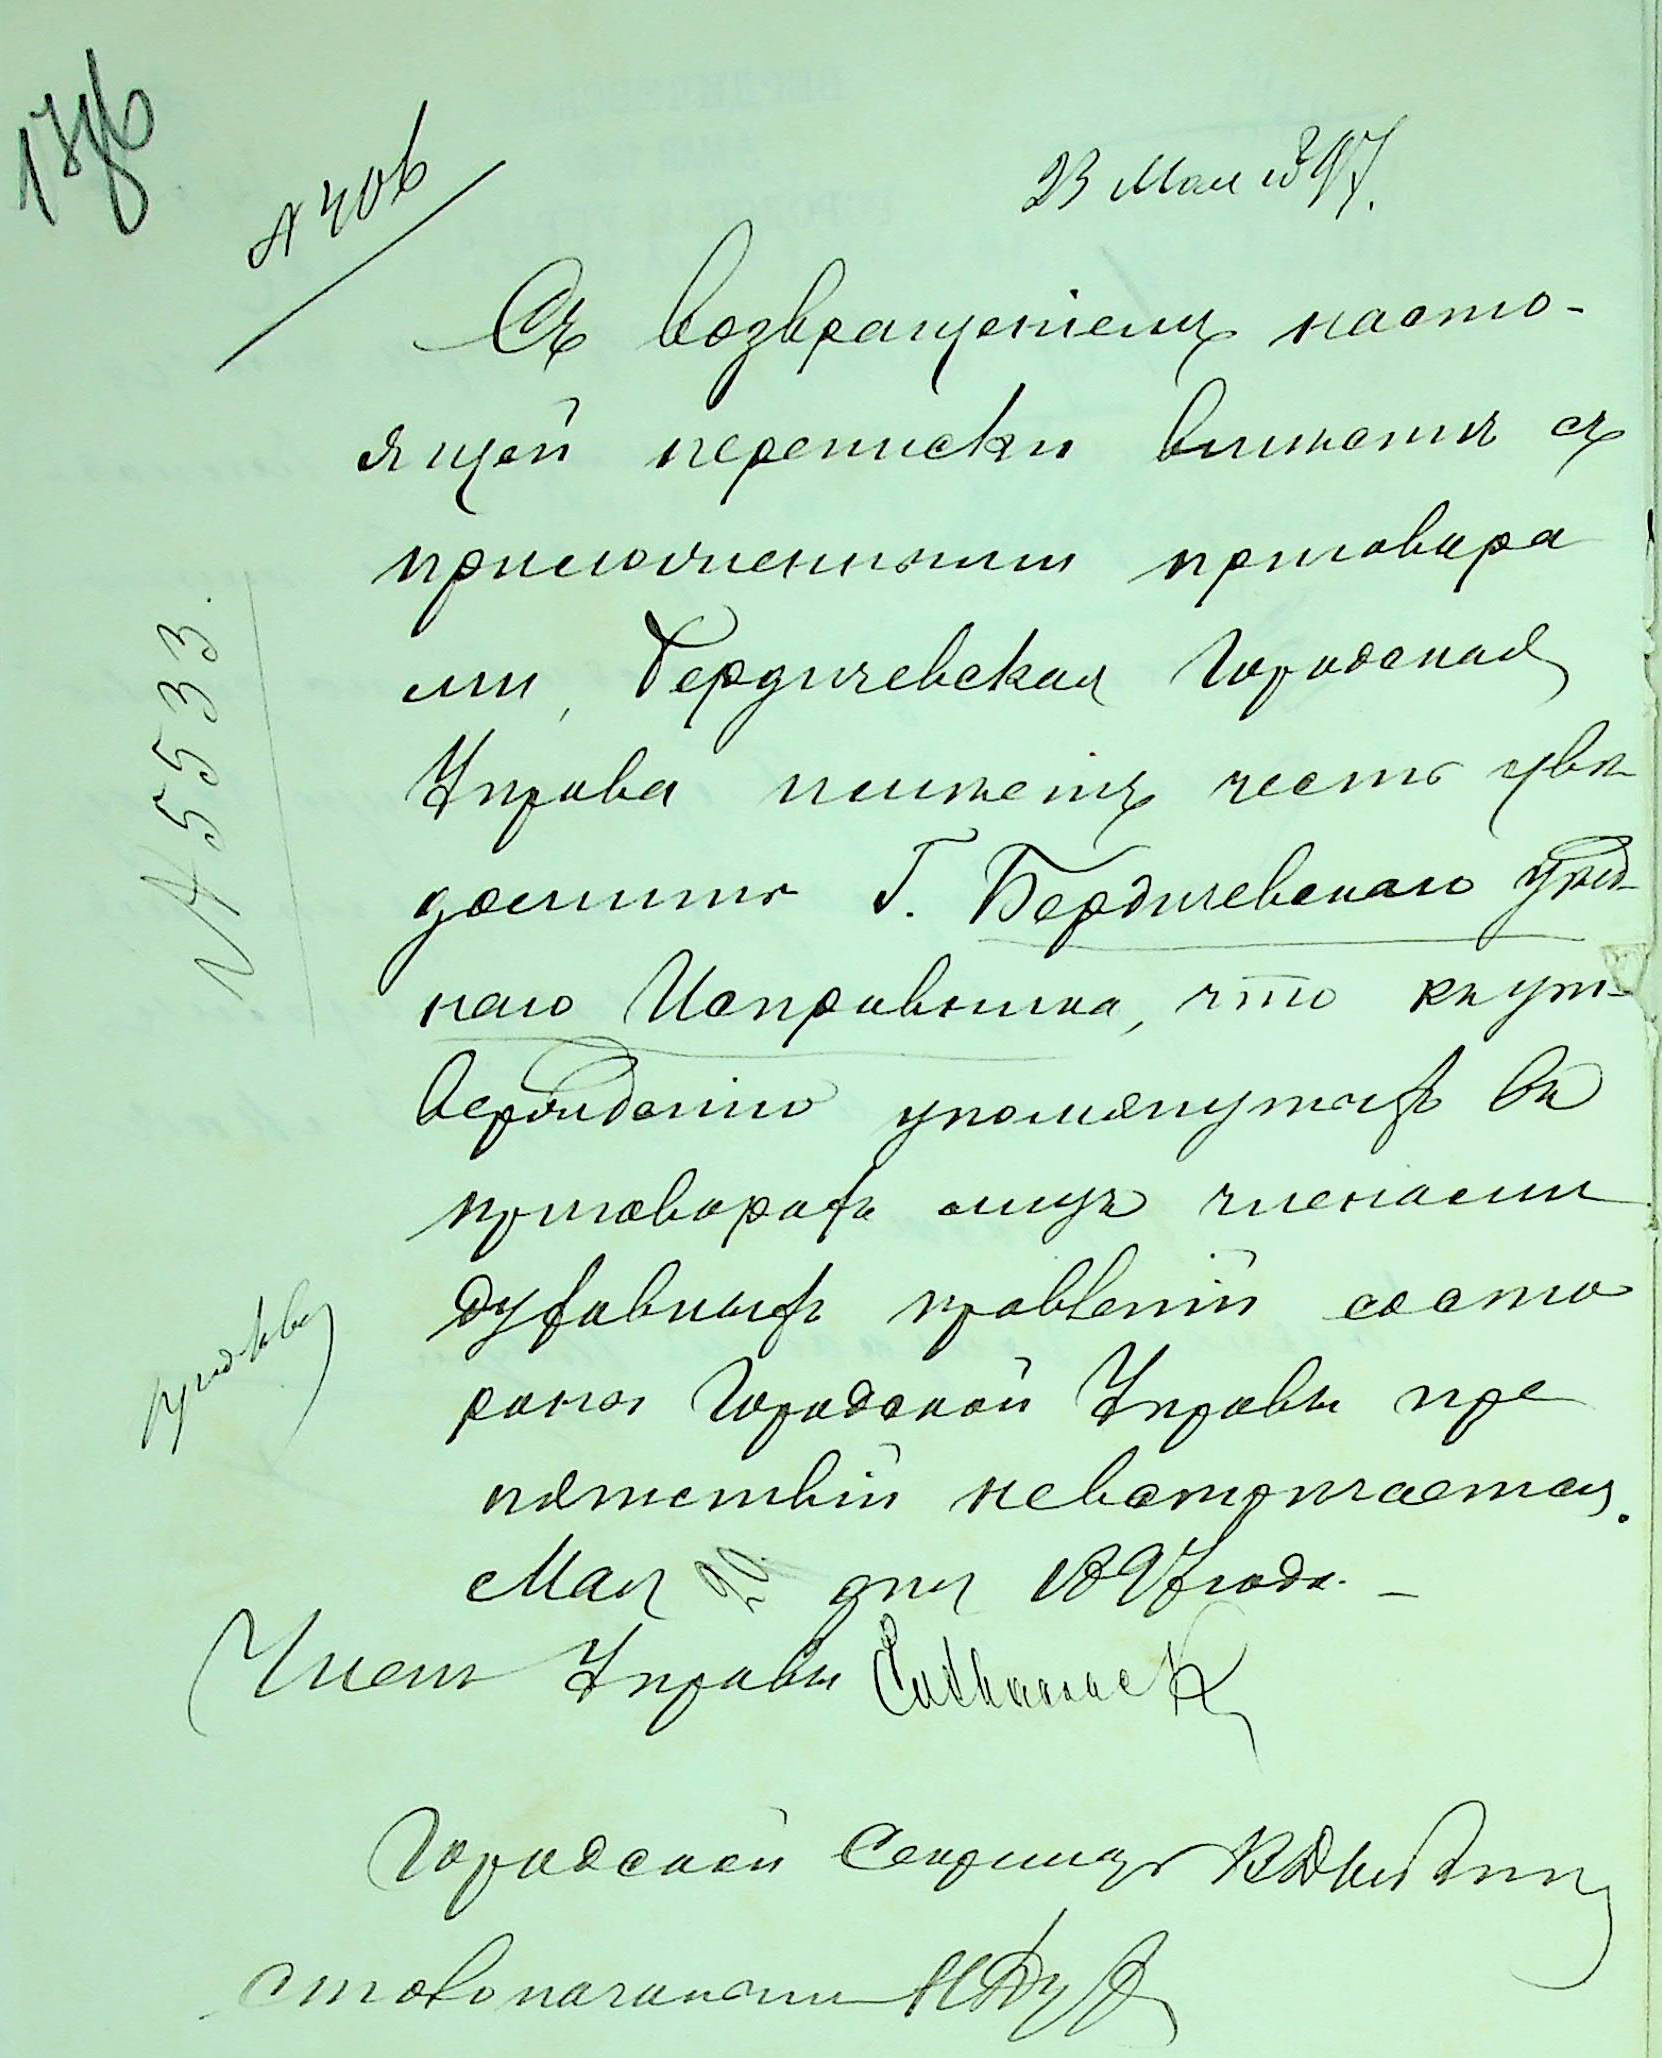 № 406
23 Мая 1897.
Съ возвращеніемъ насто-
ящей переписки вмѣстѣ съ
приложенными приговора
ми, Бердичевская Городская
Управа имѣетъ честь увѣ-
домить Г. Бердичевскаго Уѣзд-
наго Исправника, что къ ут-
вержденію упомянутыхъ въ
приговорахъ лицъ членами
духовныхъ правленій со сто
роны Городской Управы пре
пятствій не встрѣчается.
Мая 20 дня 1897 года. –
Членъ Управы
Городской Секретарь
Столоначальникъ
№ 5533.